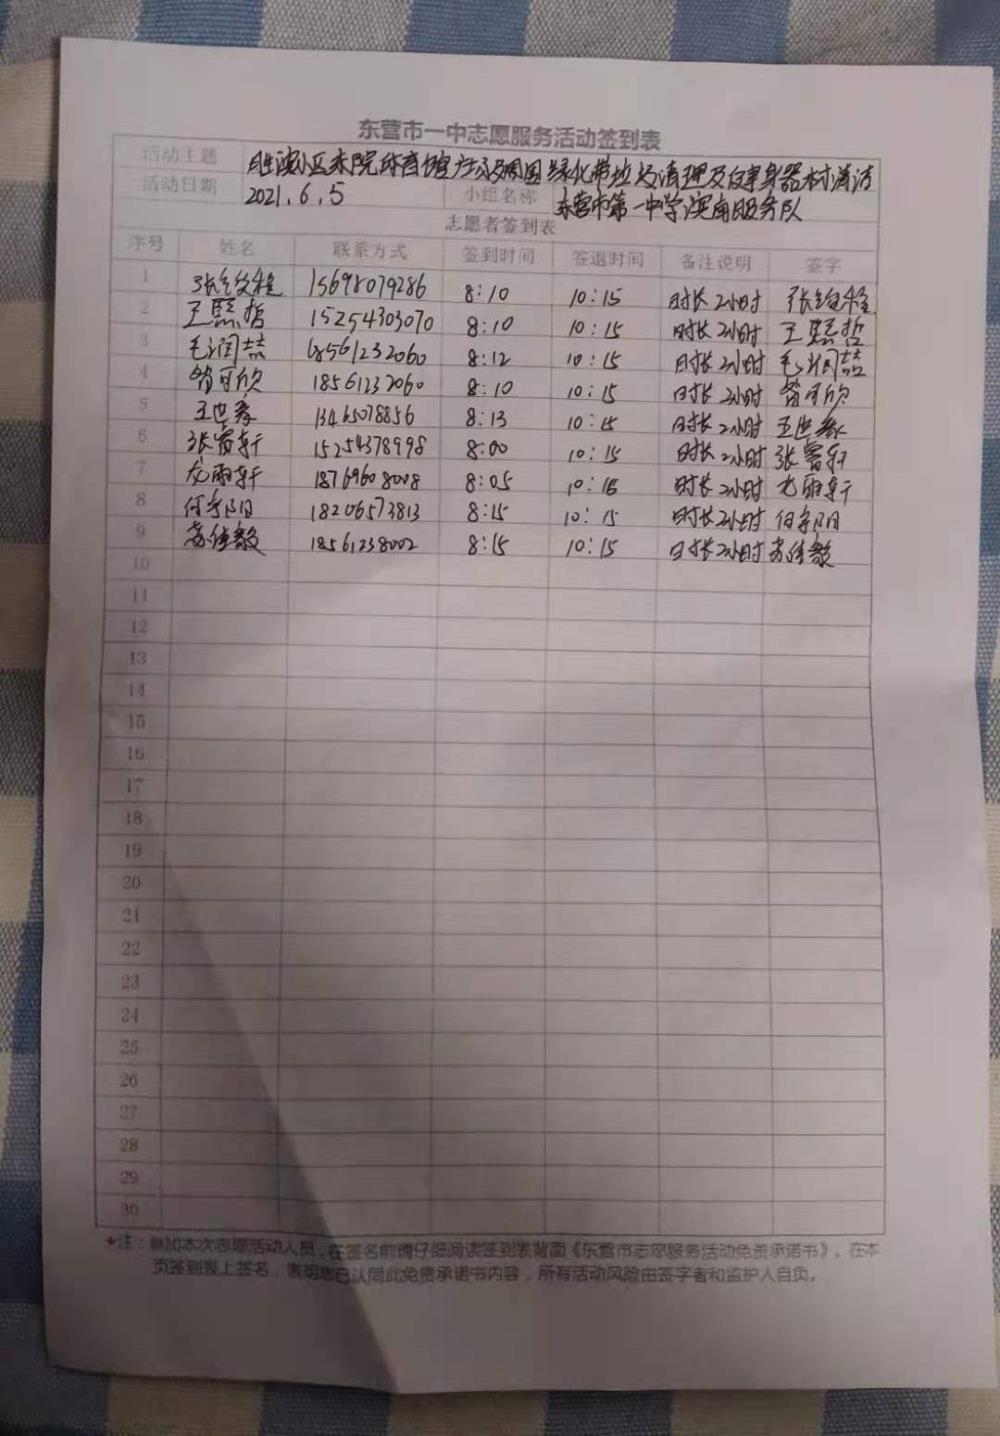 东营市一中志愿服务活动签到表
活动主题 胜滨小区东院体育馆广场及周围绿化带垃圾清理及健身器材清洁
活动日期 2021.6.5 小组名称 东营市第一中学滨南服务队
志愿者签到表
序号 姓名 联系方式 签到时间 签退时间 备注说明 签字
1 15698079286 8:10 10:15 时长2小时
2 王熙哲 15254303070 8:10 10:15 时长2小时 王熙哲
3 毛润喆 18561232060 8:12 10:15 时长2小时 毛润喆
4 可欣 18561232060 8:10 10:15 时长2小时 可欣
5 王世 13465078856 8:13 10:15 时长2小时 王世
6 张睿轩 15254378998 8:00 10:15 时长2小时 张睿轩
7 雨轩 18769608008 8:05 10:15 时长2小时 雨轩
8 何宇阳 18206573813 8:15 10:15 时长2小时 何宇阳
9 苏佳毅 18561238002 8:15 10:15 时长2小时 苏佳毅
10
11
12
13
14
15
16
17
18
19
20
21
22
23
24
25
26
27
28
29
30
*注：参加本次志愿活动人员，在签名前请仔细阅读签到表背面《东营市志愿服务活动免责承诺书》。在本
页签到表上签名，表明您已认同此免责承诺书内容，所有活动风险由签字者和监护人自负。